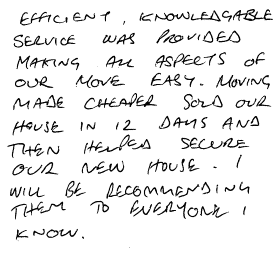 EFFICIENT, KNOWLEDGABLE
SERVICE WAS PROVIDED
MAKING ALL ASPECTS OF
OUR MOVE EASY. MOVING
MADE CHEAPER SOLD OUR
HOUSE IN 12 DAYS AND
THEN HELPED SECURE
OUR NEW HOUSE. I
WILL BE RECOMMENDING
THEM TO EVERYONE I
KNOW.